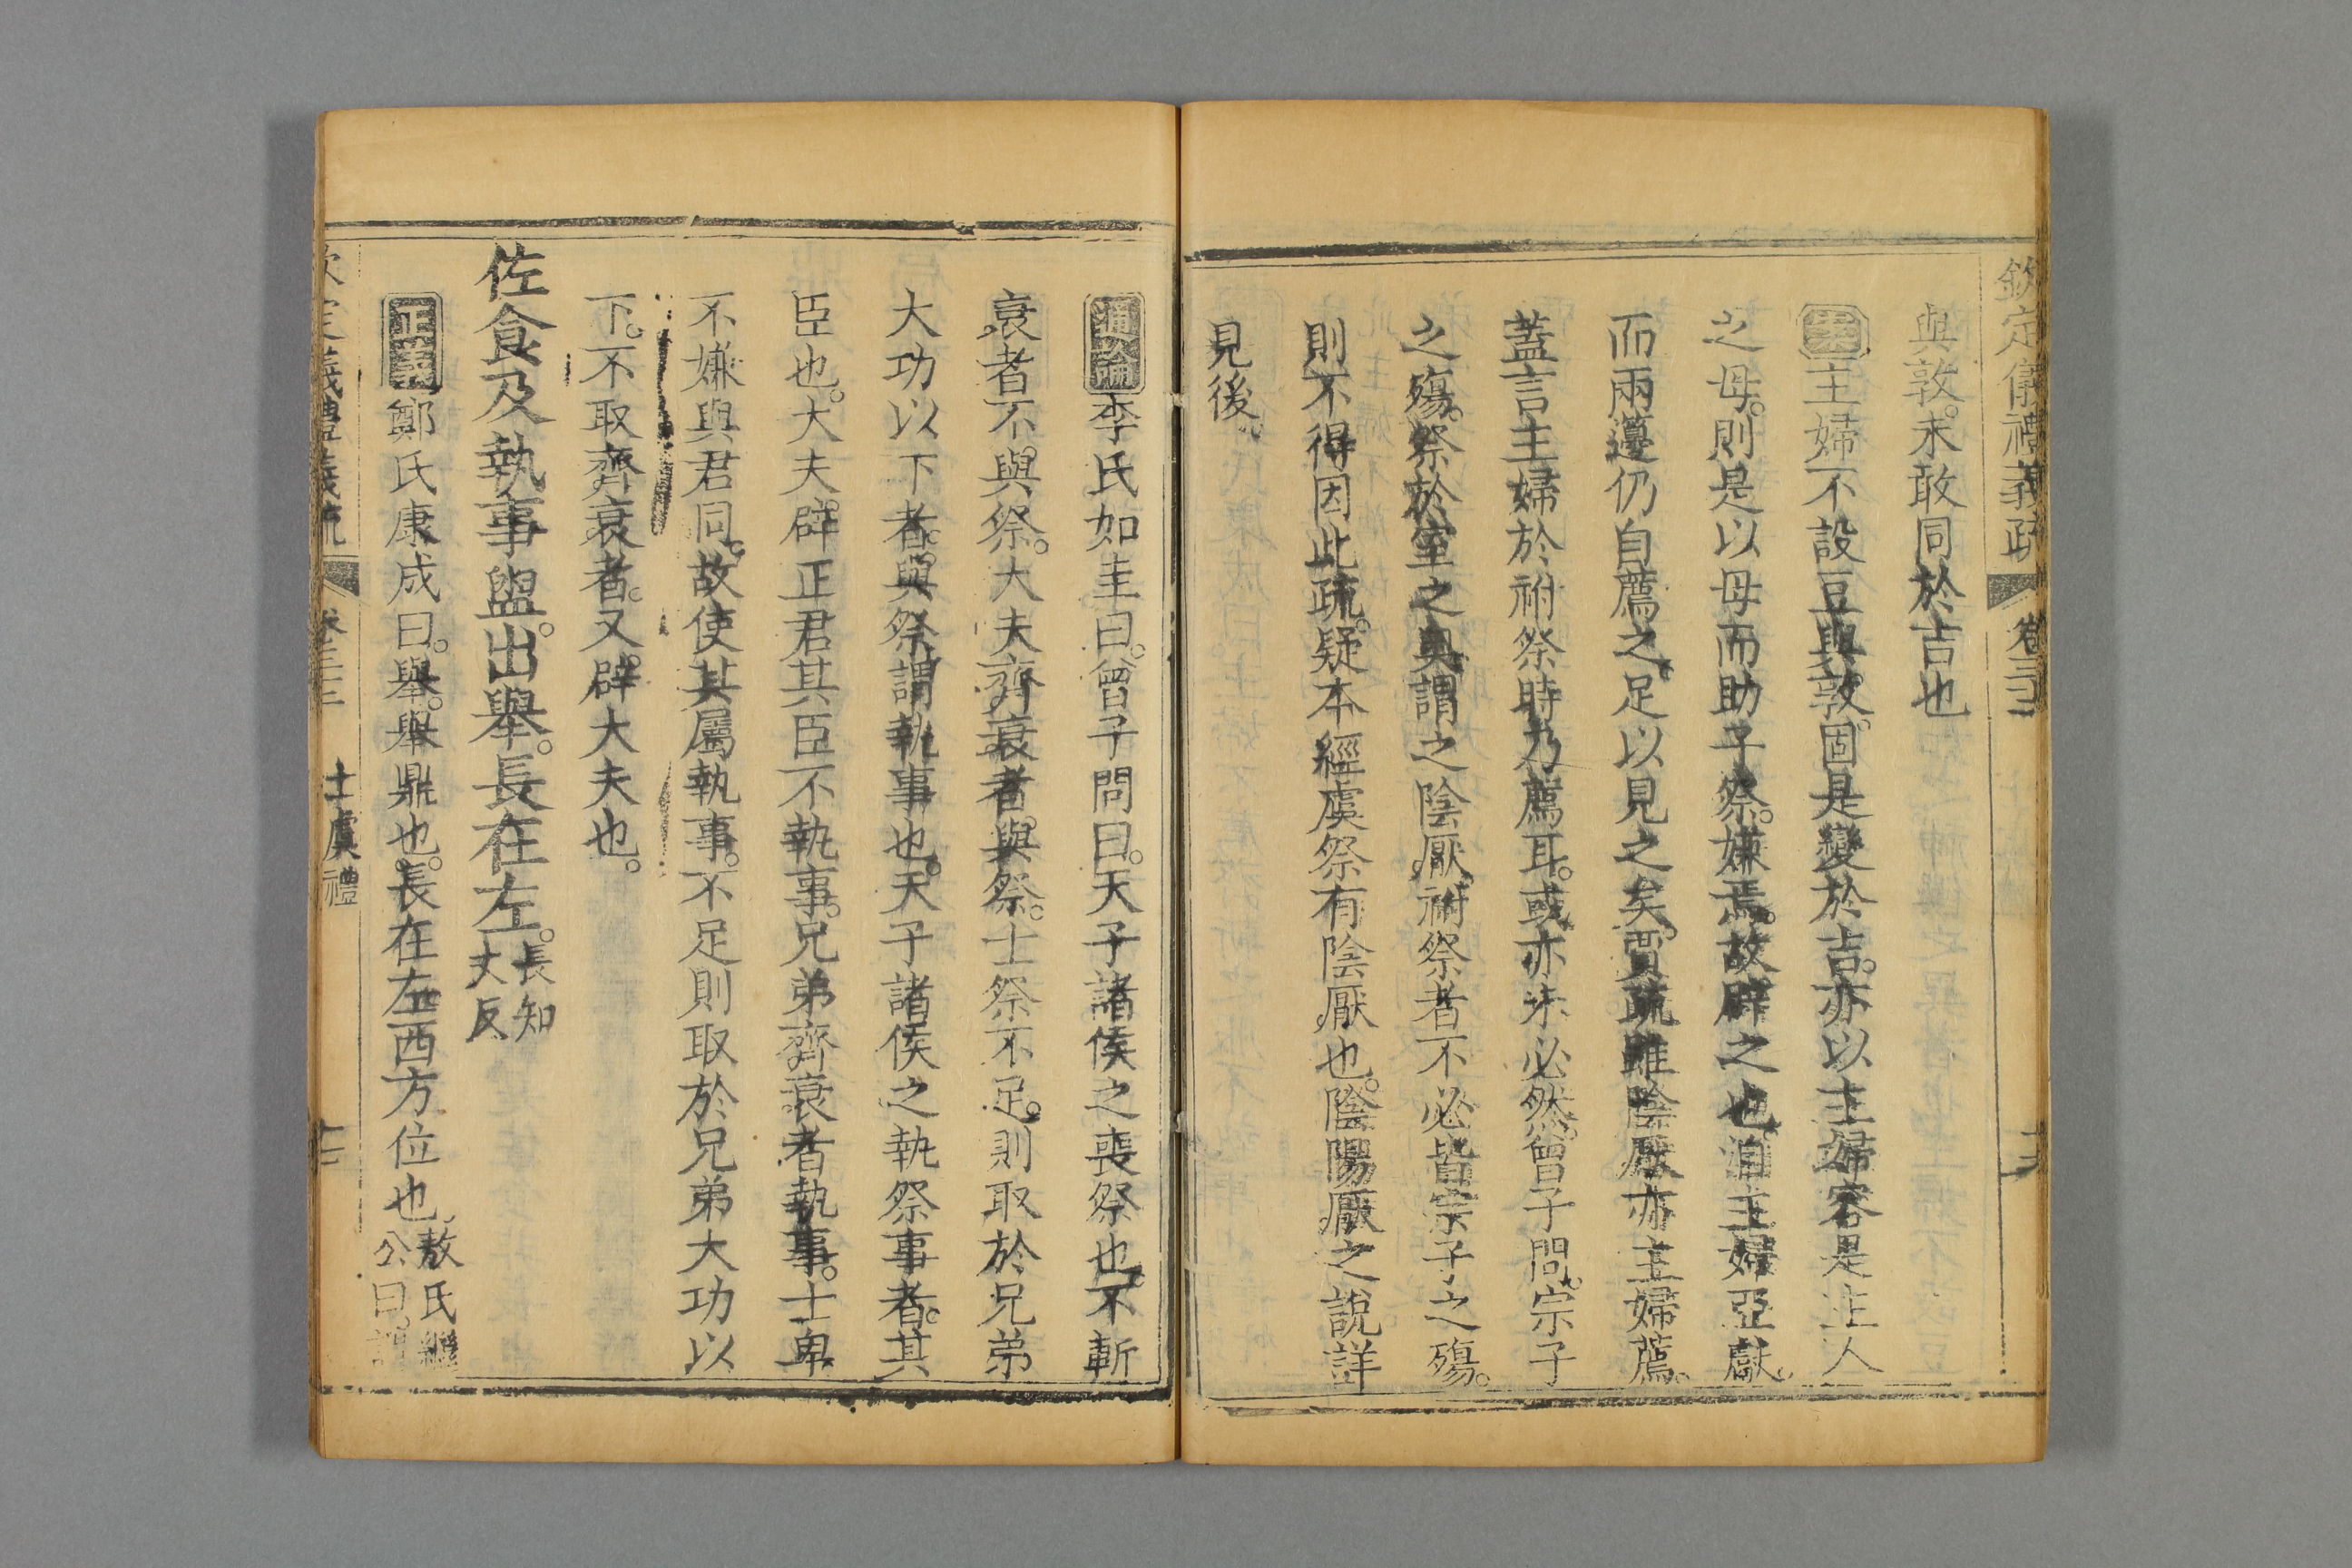 欽定儀禮義疏 卷三三
與敦。未敢同於吉也
案主婦不設豆與敦。固是變於吉。亦以主婦容是主人
之母。則是以母而助子祭。嫌焉。故辟之也。洎主婦亞獻。
而兩籩仍自薦之。足以見之矣。賈疏雖陰厭亦主婦薦。
蓋言主婦於祔祭時乃薦耳。或亦未必然。曾子問。宗子
之殤。祭於室之奧。謂之陰厭。祔祭者不必皆宗子之殤。
則不得因此疏。疑本經虞祭有陰厭也。陰陽厭之說詳
見後。
通論李氏如圭曰。曾子問曰。天子諸侯之喪祭也。不斬
衰者不與祭。大夫齊衰者與祭。士祭不足。則取於兄弟
大功以下者。與祭謂執事也。天子諸侯之執祭事者。其
臣也。大夫辟正君其臣不執事。兄弟齊衰者執事。士卑
不嫌與君同。故使其屬執事。不足則取於兄弟大功以
下。不取齊衰者。又辟大夫也。
佐食及執事盥。出舉。長在左。長知丈反
正義鄭氏康成曰。舉。舉鼎也。長在左西方位也。敖氏繼公曰。謂
欽定儀禮義疏 卷三三 士虞禮